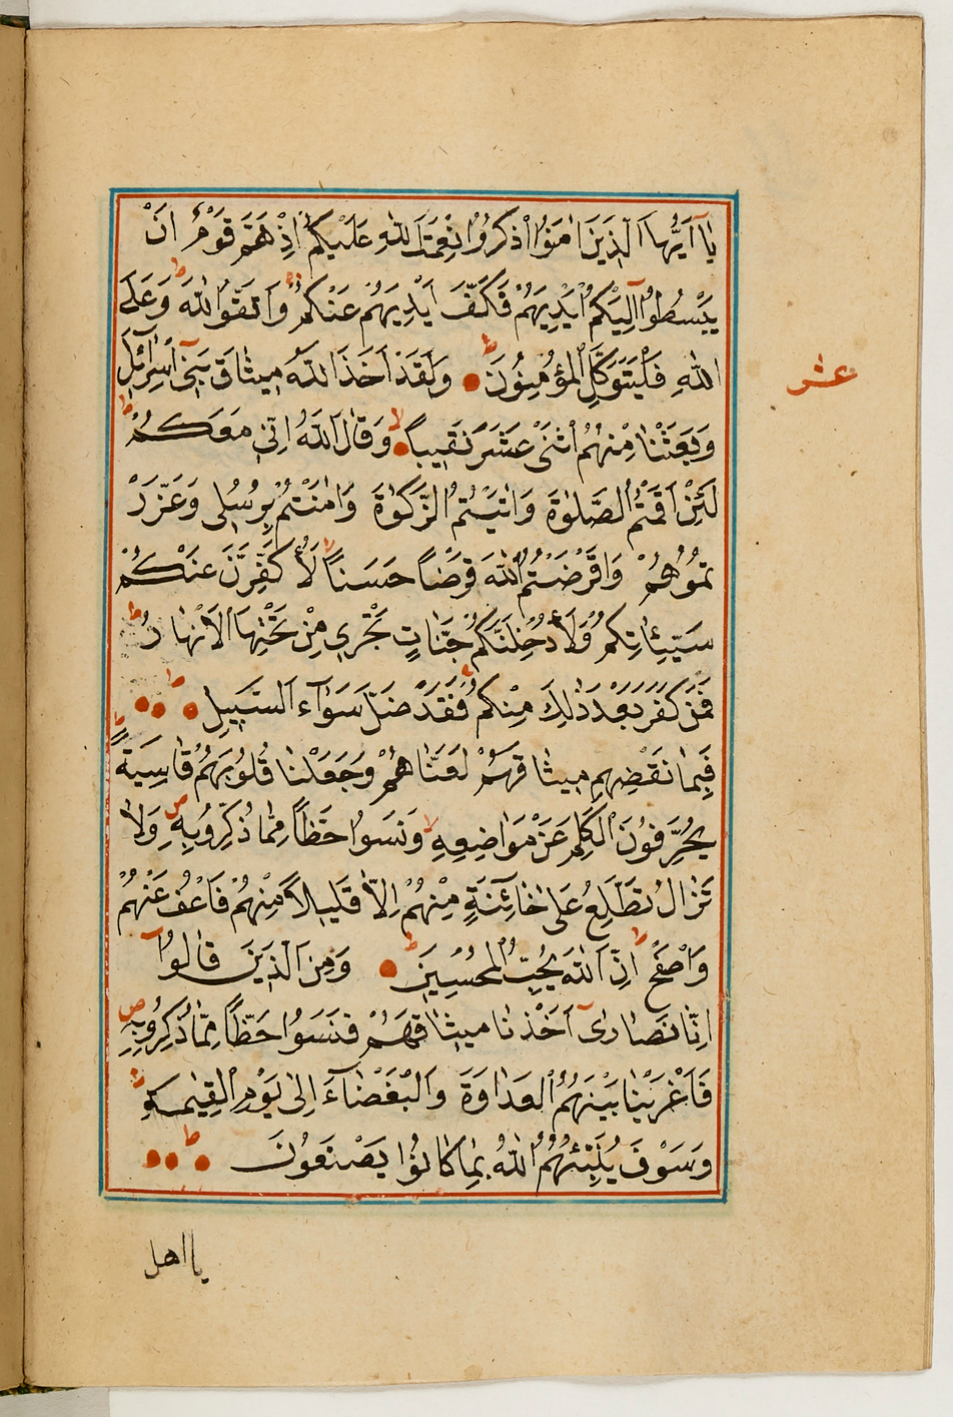 يَا آاَيُّهَا الَّذِينَ اٰمَنُوا اذْكُرُوا نِعْمَتَ اللّٰهِ عَلَيْكُمْ اِذْ هَمَّ قَوْمٌ اَنْ
يَبْسُطُوا اِلَيْكُمْ اَيْدِيَهُمْ فَكَفَّ اَيْدِيَهُمْ عَنْكُمْ وَاتَّقُوا اللّٰهَ وَعَلَى
اللّٰهِ فَلْيَتَوَكَّلِ الْمُؤْمِنُونَ وَلَقَدْ اَخَذَ اللّٰهُ مِيثَاقَ بَنِي اِسْرَآئِلَ
عشر
وَبَعَثْنَا مِنْهُمُ اثْنَىْ عَشَرَ نَقِيبًا وَقَالَ اللّٰهُ اِنِّي مَعَكُمْ
لَئِنْ اَقَمْتُمُ الصَّلٰوةَ وَاٰتَيْتُمُ الزَّكٰوةَ وَاٰمَنْتُمْ بِرُسُلِي وَعَزَّرْ
تُمُوهُمْ وَاَقْرَضْتُمُ اللّٰهَ قَرْضًا حَسَنًا لَاُكَفِّرَنَّ عَنْكُمْ
سَيِّئَاتِكُمْ وَلَاُدْخِلَنَّكُمْ جَنَّاتٍ تَجْرِي مِنْ تَحْتِهَا الْاَنْهَارُ
فَمَنْ كَفَرَ بَعْدَ ذٰلِكَ مِنْكُمْ فَقَدْ ضَلَّ سَوَآءَ السَّبِيلِ
فَبِمَا نَقْضِهِمْ مِيثَاقَهُمْ لَعَنَّاهُمْ وَجَعَلْنَا قُلُوبَهُمْ قَاسِيَةً
يُحَرِّفُونَ الْكَلِمَ عَنْ مَوَاضِعِهِ وَنَسُوا حَظًّا مِمَّا ذُكِّرُوا بِهِ وَلَا
تَزَالُ تَطَّلِعُ عَلٰى خَآئِنَةٍ مِنْهُمْ اِلَّا قَلِيلًا مِنْهُمْ فَاعْفُ عَنْهُمْ
وَاصْفَحْ اِنَّ اللّٰهَ يُحِبُّ الْمُحْسِنِينَ وَمِنَ الَّذِينَ قَالُوا
اِنَّا نَصَارٰى اَخَذْنَا مِيثَاقَهُمْ فَنَسُوا حَظًّا مِمَّا ذُكِّرُوا بِهِ
فَاَغْرَيْنَا بَيْنَهُمُ الْعَدَاوَةَ وَالْبَغْضَآءَ اِلٰى يَوْمِ الْقِيٰمَةِ
وَسَوْفَ يُنَبِّئُهُمُ اللّٰهُ بِمَا كَانُوا يَصْنَعُونَ
يا اهل